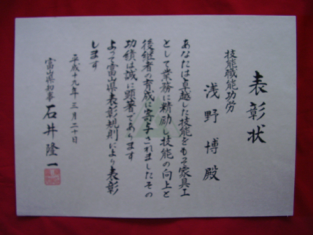 表彰状
技能職能功労
浅野博殿
あなたは卓越した技能をもつ家具工
として業務に精励し技能の向上と
後継者の育成に寄与されましたその
功績は誠に顕著であります
よって富山県表彰規則により表彰
します
平成十九年三月二十日
富山県知事 石井隆一